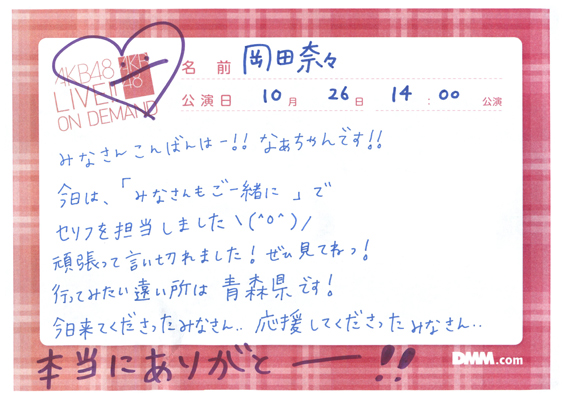 AKB48
AKB48
LIVE!!
ON DEMAND
名 前 岡田奈々
公演日 10月 26日 14:00 公演
みなさんこんばんはー!! なぁちゃんです!!
今日は、「みなさんもご一緒に 」で
セリフを担当しました \(^o^)/
頑張って言い切れました! ぜひ見てねっ!
行ってみたい遠い所は 青森県です!
今日来てくださったみなさん.. 応援してくださったみなさん..
本当にありがとーー!!
DMM.com